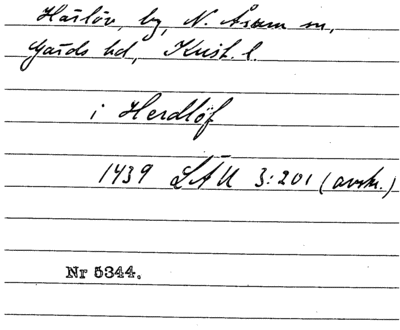 Härlöv, by, N. Åsum sn,
Gärds hd, Krist. l.
i Herdlöf
1439 LÄU 3:201 (avskr.)
Nr 5344.